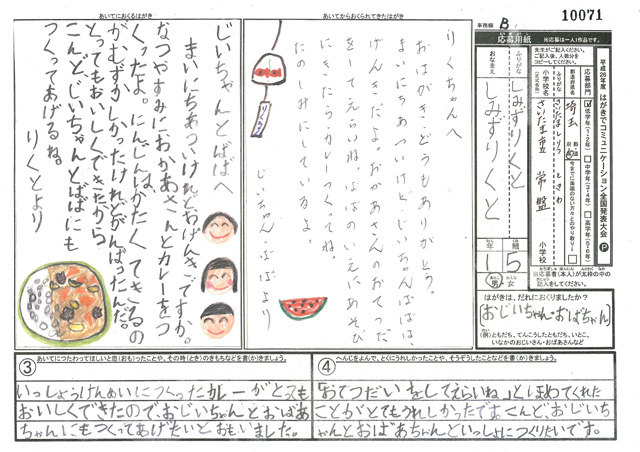 事務欄 B
10071
平成26年度 はがきでコミュニケーション全国発表大会 P
応募用紙
※応募は一人1作品です。
先生がご記入ください。
ご記入後、人数分を
コピーしてください。
応募部門
低学年(1・2年)
中学年(3・4年)
高学年(5・6年)
都道府県名
埼玉
都・道
府・県
ふりがな
さいたましりつ ときわ
小学校名
(正式名称)
さいたま市立 常盤
小学校
ふりがな
しみずりくと
おなまえ
しみずりくと
1年
5組
男・女
※応募者(本人)が太枠の中の
記入をしてください。
はがきは、だれにおくりましたか?
(おじいちゃん おばちゃん)
(例)ともだち、てんこうしたともだち、いとこ、
いなかのおじいさん・おばあさんなど
あいてからおくられてきたはがき
りくちゃんへ
おはがき、どうもありがとう。
まいにちあついけど、じいちゃんばばは、
げんきだよ。おかあさんのおてつだい
をえらいね。
にきたら、カレーつくってね。
たのしみにしているよ。
じいちゃん ばばより
りくちゃん
あいてにおくるはがき
じいちゃんとばばへ
まいにちあついけれどおげんきですか。
なつやすみにおかあさんとカレーをつ
くったよ。にんじんはかたくてきるの
がむずかしかったけれどがんばったんだ。
とってもおいしくできたから
こんどじいちゃんとばばにも
つくってあげるね。
りくとより
③ あいてにつたわってほしいと思(おも)ったことや、その時(とき)のきもちなどを書(か)きましょう。
いっしょうけんめいにつくったカレーがとっても
おいしくできたので、おじいちゃんとおばあ
ちゃんにもつくってあげたいとおもいました。
④ へんじをよんで、とくにうれしかったことや、そうぞうしたことなどを書(か)きましょう。
「おてつだいをしてえらいね」とほめてくれた
ことがとてもうれしかったです。こんど、おじいち
ゃんとおばあちゃんといっしょにつくりたいです。